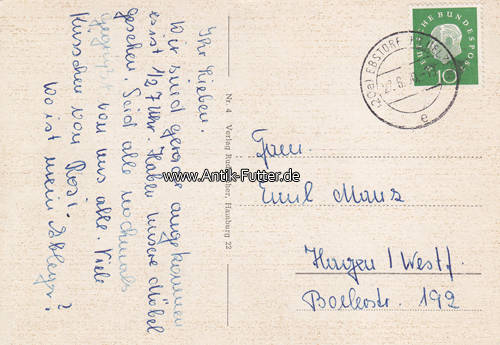 Ihr Lieben.
Wir sind gerade angekommen
es ist 1/2 7 Uhr. Haben unsere Möbel
gesehen. Seid alle nochmals
gegrüßt von uns alle. Viele
Küsschen von Rosi.
Wo ist mein Ableger?
Nr. 4 Verlag Hamburg 22
www.Antik-Futter.de
(20a) EBSTORF
e
DEUTSCHE BUNDESPOST
10
Fam.
Emil Manz
Hagen / Westf.
Boelestr. 192